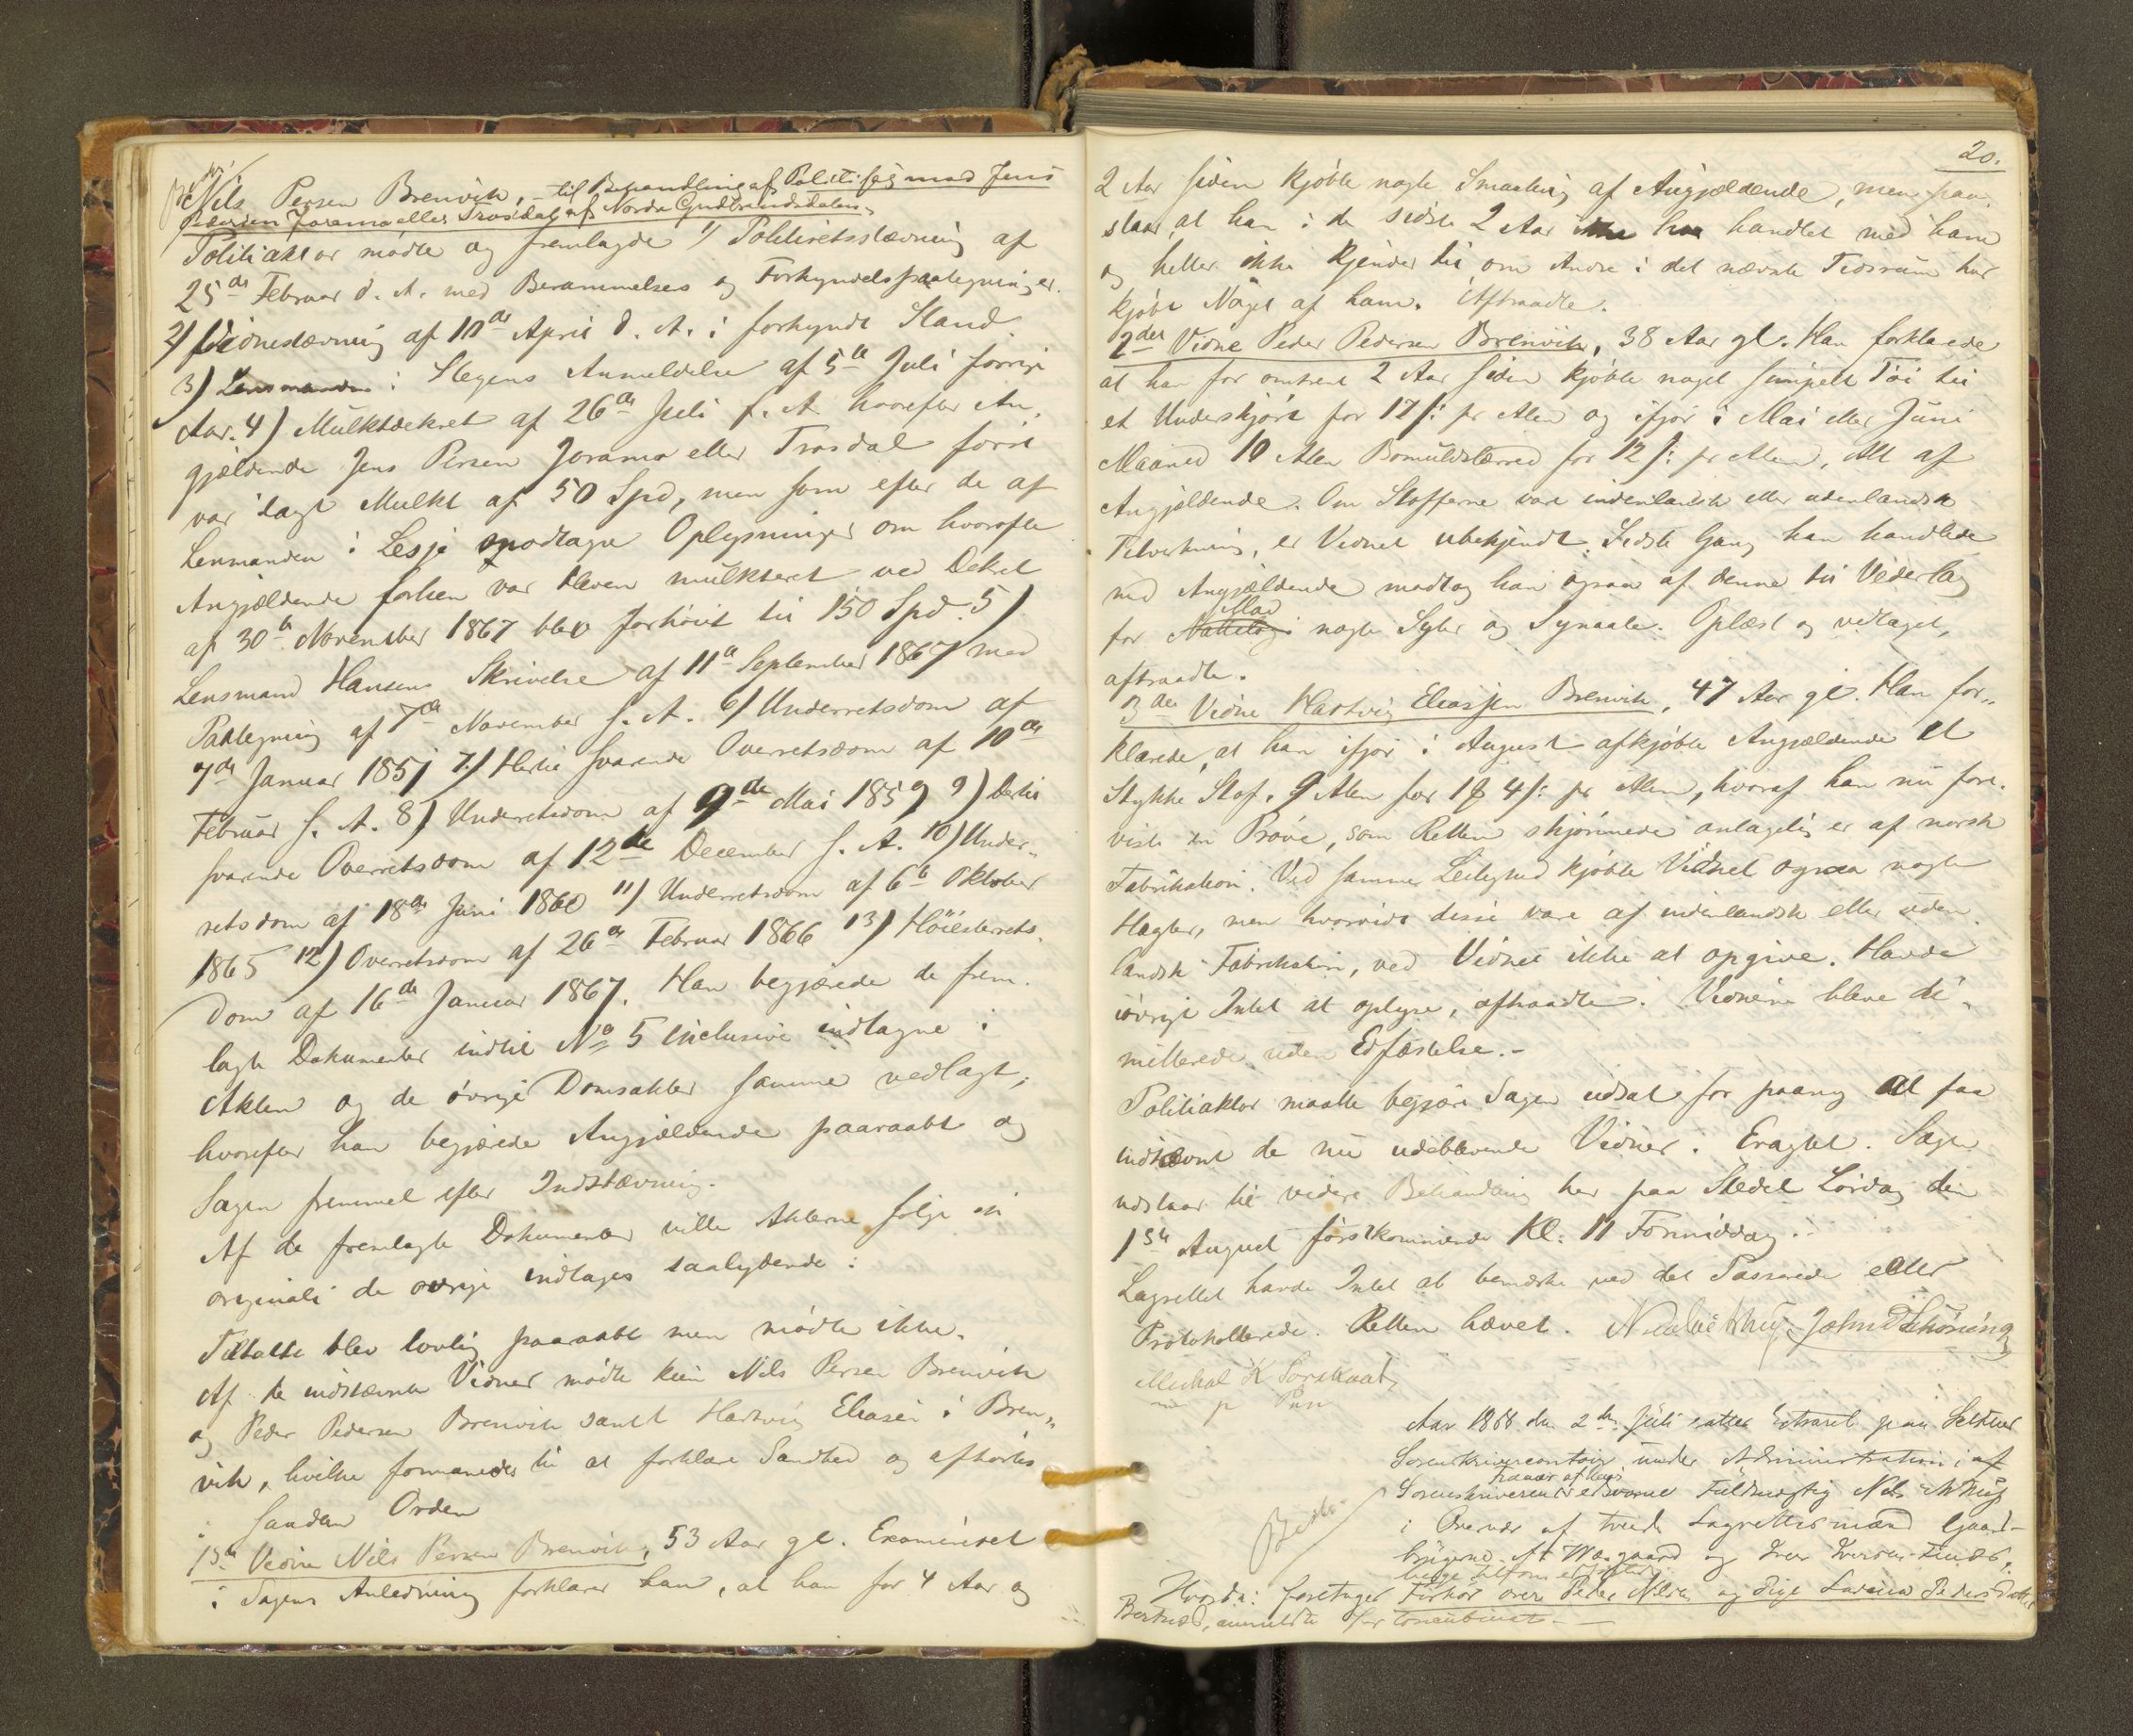 Nils Persen Brenvik, - til Behandling af Politisag mod Jens
Pedersen Joramo eller Trosdal af Nordre Gudbrandsdalen.
Politiaktor mødte og fremlagde 1) Politiretsstævning af
25de Februar d. A. med Berammelses og Forkyndelsespaategninger.
2) Vidnestævning af 10de April d. A. i forkyndt Stand.
3) Lensmanden i Stegens Anmeldelse af 5te Juli forrige
Aar. 4) Mulktdekret af 26de Juli f. A. hvorefter An-
gjældende Jens Persen Joramo eller Trosdal først
var ilagt Mulkt af 50 Spd, men som efter de af
Lensmanden i Lesje modtagne Oplysninger om hvorofte
Angjældende forhen var bleven mulkteret ved Dekret
af 30te November 1867 blev forhøiet til 150 Spd. 5)
Lensmand Hansens Skrivelse af 11te September 1867 med
Paategning af 7de November s. A. 6) Underretsdom af
7de Januar 1857 7) Hertil svarende Overretsdom af 10de
Februar s. A. 8) Underretsdom af 9de Mai 1859 9) Dertil
svarende Overretsdom af 12te December s. A. 10) Under-
retsdom af 18de Juni 1860 11) Underretsdom af 6te Oktober
1865 12) Overretsdom af 26de Februar 1866 13) Høiesterets-
dom af 16de Januar 1867. Han begjærede de frem-
lagte Dokumenter indtil No 5 inclusive indtagne i
Akten og de øvrige Domsakter samme vedlagt,
hvorefter han begjærede Angjældende paaraabt og
Sagen fremmet efter Indstævning.
Af de fremlagte Dokumenter ville Akterne følge in
originali de øvrige indtages saalydende:
Tiltalte blev lovlig paaraabt men mødte ikke.
Af de indstævnte Vidner mødte kun Nils Persen Brenvik
og Peder Pedersen Brenvik samt Hartvig Eliasen i Bren-
vik, hvilke formanedes til at forklare Sandhed og afhørtes
i saadan Orden
1ste Vidne Nils Persen Brenvik, 53 Aar gl. Examineret
i Sagens Anledning forklarer han, at han for 4 Aar og
20.
2 Aar siden kjøbte nogle Smaating af Angjældende, men paa-
staar, at han i de sidste 2 Aar ikke har handlet med ham
og heller ikke kjender til om Andre i det nævnte Tidsrum har
kjøbt Noget af ham. Aftraadte.
2det Vidne Peder Pedersen Brenvik, 38 Aar gl. Han forklarede
at han for omtrent 2 Aar siden kjøbte noget simpelt Tøi til
et Underskjørt for 17 s: pr Alen og ifjor i Mai eller Juni
Maaned 10 Alen Bomuldslærred for 12 s: pr Alen, Alt af
Angjældende. Om Stofferne vare indenlandsk eller udenlandsk
Tilvirkning, er Vidnet ubekjendt. Sidste Gang han handlede
med Angjældende modtog han ogsaa af denne til Vederlag
Mad
for Nattelogi nogle Syler og Synaale. Oplæst og vedtaget,
aftraadte.
3die Vidne Hartvig Eliassen Brenvik, 47 Aar gl. Han for-
klarede, at han ifjor i August afkjøbte Angjældende et
Stykke Stof, 9 Alen for 1 4 s: pr Alen, hvoraf han nu fore-
viste en Prøve, som Retten skjønnede antagelig er af norsk
Fabrikation. Ved samme Leilighed kjøbte Vidnet ogsaa nogle
Hægter, men hvorvidt disse vare af indenlandsk eller uden-
landsk Fabrikation, ved Vidnet ikke at opgive. Havde
iøvrigt Intet at oplyse, aftraadte. Vidnerne bleve di-
mitterede uden Edfæstelse.-
Politiaktor maatte begjære Sagen udsat for paany at faa
indstævnt de nu udeblevende Vidner. Eragtet. Sagen
udstaar til videre Behandling her paa Stedet Lørdag den
1ste August førstkommende Kl: 11 Formiddag.
Lagrettet havde Intet at bemærke ved det Passerede eller
Protokollerede. Retten hævet. John Schøning
Michal K
m p Pen
Aar 1868 den 2den Juli sattes Extraret paa
Sorenskrivercontoir under Administration i af
Sorenskriverens edsvorne Fuldmægtig Nils
i Overvær af tvende Lagrettesmænd Gaard-
brugerne
Hvorda: foretages Forhør over Peder Nilsen og Pige Pedersdatter
anmeldte for Concubinat.-